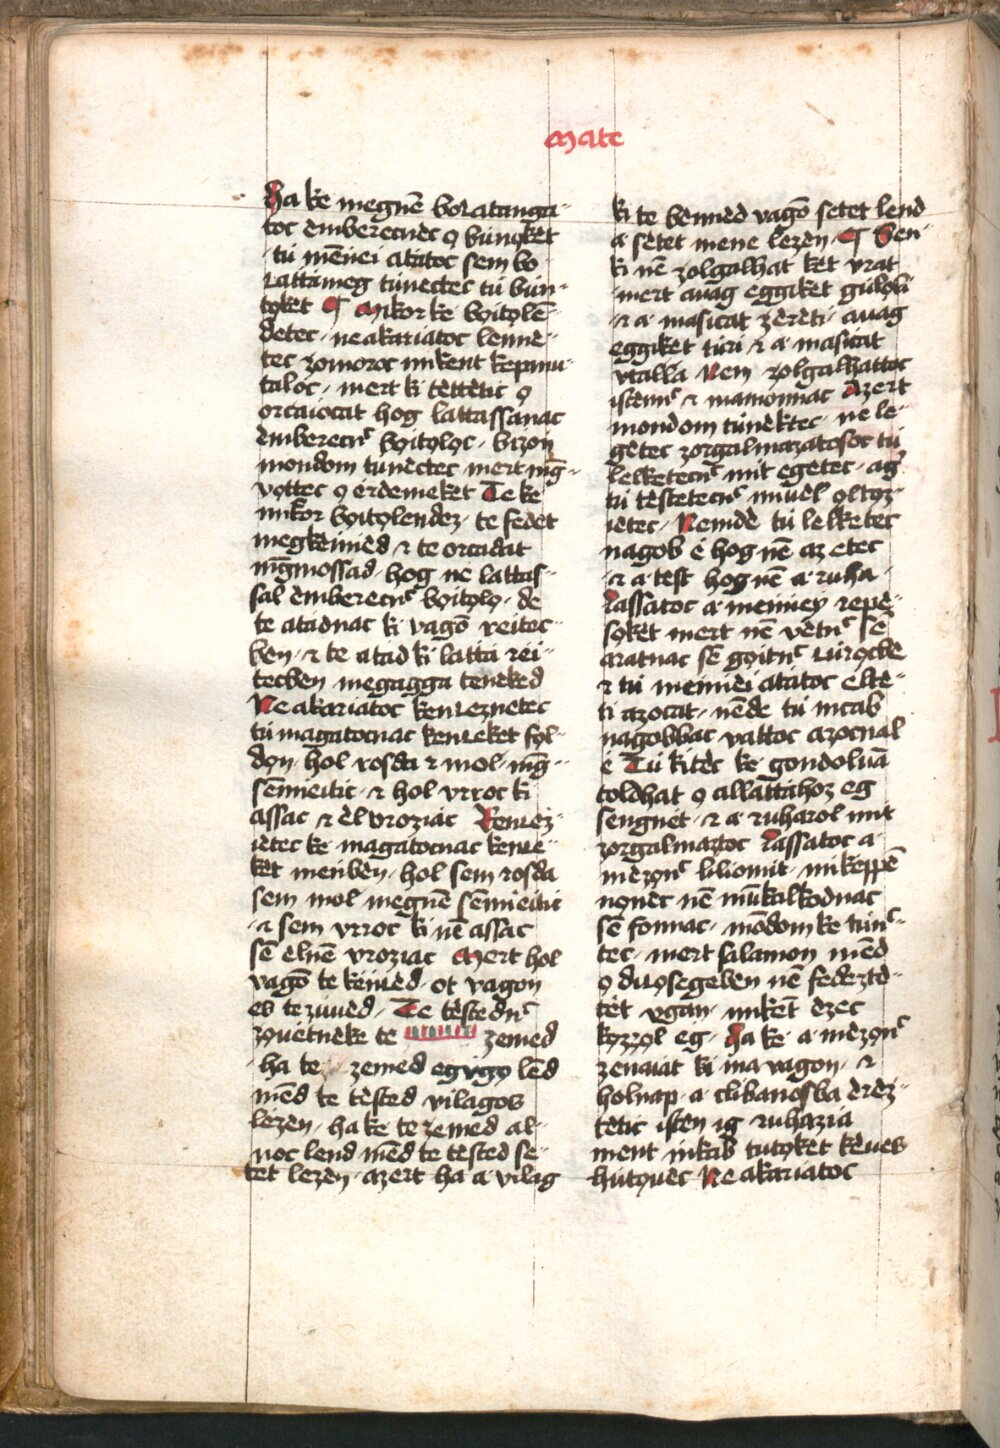 Mate
Ha ke megnē bočatanga-
toc èmberecnèc ǫ bunǫket
tu mēnei atatoc sem bo
čattameg tunectec tu bun-
tǫket ¶ Mikor ke bǫitǫlē-
detec · ne akariatoc lennè-
tec zomoroc mikent kepmu-
taloc · mert ki tèttetic ǫ
orcaiocat hog lattassanac
èmberecnc bǫitǫlǫc · bizon
mondom tunectec mert mḡ-
vǫttec ǫ erdemeket Te ke
mikor bǫitǫlendez · te fedet
megkènied ⁊ te orcadat
mḡmossad · hog ne lattas-
sal èmberecnc bǫitǫlǫ · de
te atadnac ki vagō reitec-
ben · ⁊ te atad ki latta rei-
tecben megagga teneked
Ne akariatoc kenčeznetec
tu magatocnac kenčeket fǫl-
dǫn · hol rosda ⁊ mol · mḡ-
sēmieitic · ⁊ hol vrroc ki
assac ⁊ èl vroziac Kenčez-
ietec ke magatocnac kenče-
ket menben · hol sem rosda
sem mol megnē sēmieitic
⁊ sem vrroc ki nē assac
sē elnē vroziac Mert hol
vagō te kènčed · ot vagon
es te zuued · Te tèstednc
zǫuetneke te zemed
ha te zemed egvgǫ lēd
mēd te tested vilagos
lezèn · ha ke te zemed al-
noc lend mēd te tested se-
tet lezèn · azert ha a vilag
ki te benned vagō setet lend
a sètet mene lezèn ¶ Sen-
ki nē zolgalhat ket vrat
mert auag eggiket gulǫli
⁊ a masicat zereti · auag
eggiket turi ⁊ a masicat
vtalla Nem zolgalhattoc
istennc ⁊ mamonnac Azert
mondom tunektec · ne le-
getec zorgalmazatosoc tu
lelketecnc mit egetec · ag
tu testetecnc miuèl ǫltǫz-
ietec · Nemde tu lelketec
nagob è hog nē az etec
⁊ a test hog nē a ruha
Lassatoc a menniey repe-
sǫket mert nē vètnc sē
aratnac sē gǫitnc čurǫcbe
⁊ tu menniei atatoc elte-
ti azocat · nēde tu incab
nagobbac vattoc azocnal
è Tu kitèc ke gondoluā
toldhat ǫ allattahoz eg
sengnet · ⁊ a ruharol mit
zorgalmaztoc Lassatoc a
mèzǫnc liliomit · mikeppē
nǫnec nē mūkalkodnac
sē fonnac · mōdom ke tunc-
tec · mert salamon mēd
ǫ dičǫsegeben nē fedeztè-
tèt vgan · mikēt ezec
kǫzzǫl eg · Ha ke a mèzǫnc
zenaiat ki ma vagon · ⁊
holnap · a clibanosba èrez-
tetic isten ig ruhazia
ment inkab tutǫket kèues
hutǫuèc Ne akariatoc